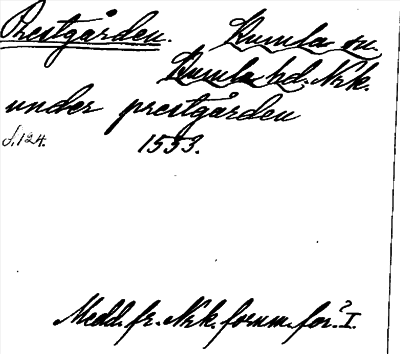 Prestgården. Kumla sn.
Kumla hd. Nrk.
under prestgården
s. 124. 1553.
Medd. fr. Nrk. fornm. för. I.